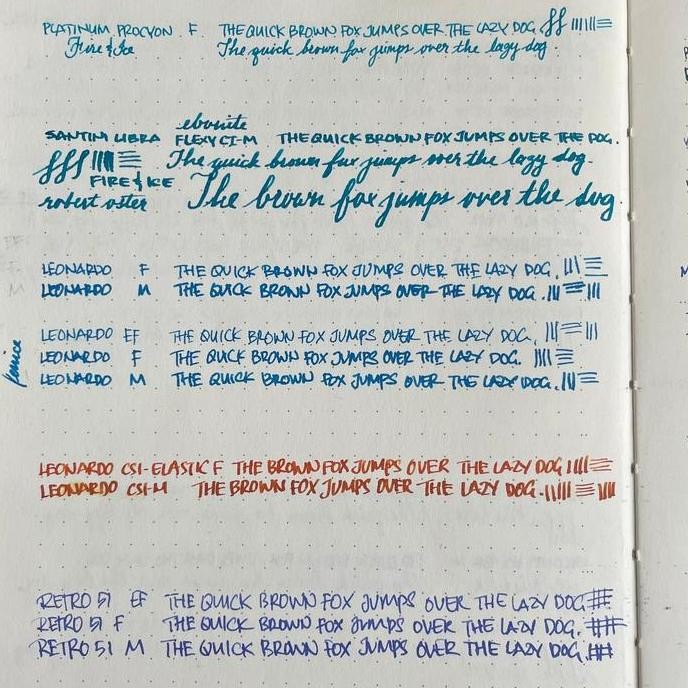 PLATINUM PROCYON . F. THE QUICK BROWN FOX JUMPS OVER THE LAZY DOG.
Fire & Ice The quick brown fox jimps over the lazy dog.
ebonite
SANTINI LIBRA FLEXY CI-M THE QUICK BROWN FOX JUMPS OVER THE DOG.
The quick brown fux jumps over the lazy dog.
FIRE & ICE
robert oster The brown fox jumps over the dog
LEONARDO F THE QUICK BROWN FOX JUMPS OVER THE LAZY DOG.
LEONARDO M THE QUICK BROWN FOX JUMPS OVER THE LAZY DOG.
LEONARDO EF THE QUICK BROWN FOX JUMPS OVER THE LAZY DOG.
LEONARDO F THE QUICK BROWN FOX JUMPS OVER THE LAZY DOG.
LEONARDO M THE QUICK BROWN FOX JUMPS OVER THE LAZY DOG.
LEONARDO CSI-ELASTIC F THE BROWN FOX JUMPS OVER THE LAZY DOG
LEONARDO CSI-M THE BROWN FOX JUMPS OVER THE LAZY DOG.
RETRO 51 EF THE QUICK BROWN FOX JUMPS OVER THE LAZY DOG
RETRO 51 F THE QUICK BROWN FOX JUMPS OVER THE LAZY DOG.
RETRO 51 M THE QUICK BROWN FOX JUMPS OVER THE LAZY DOG.